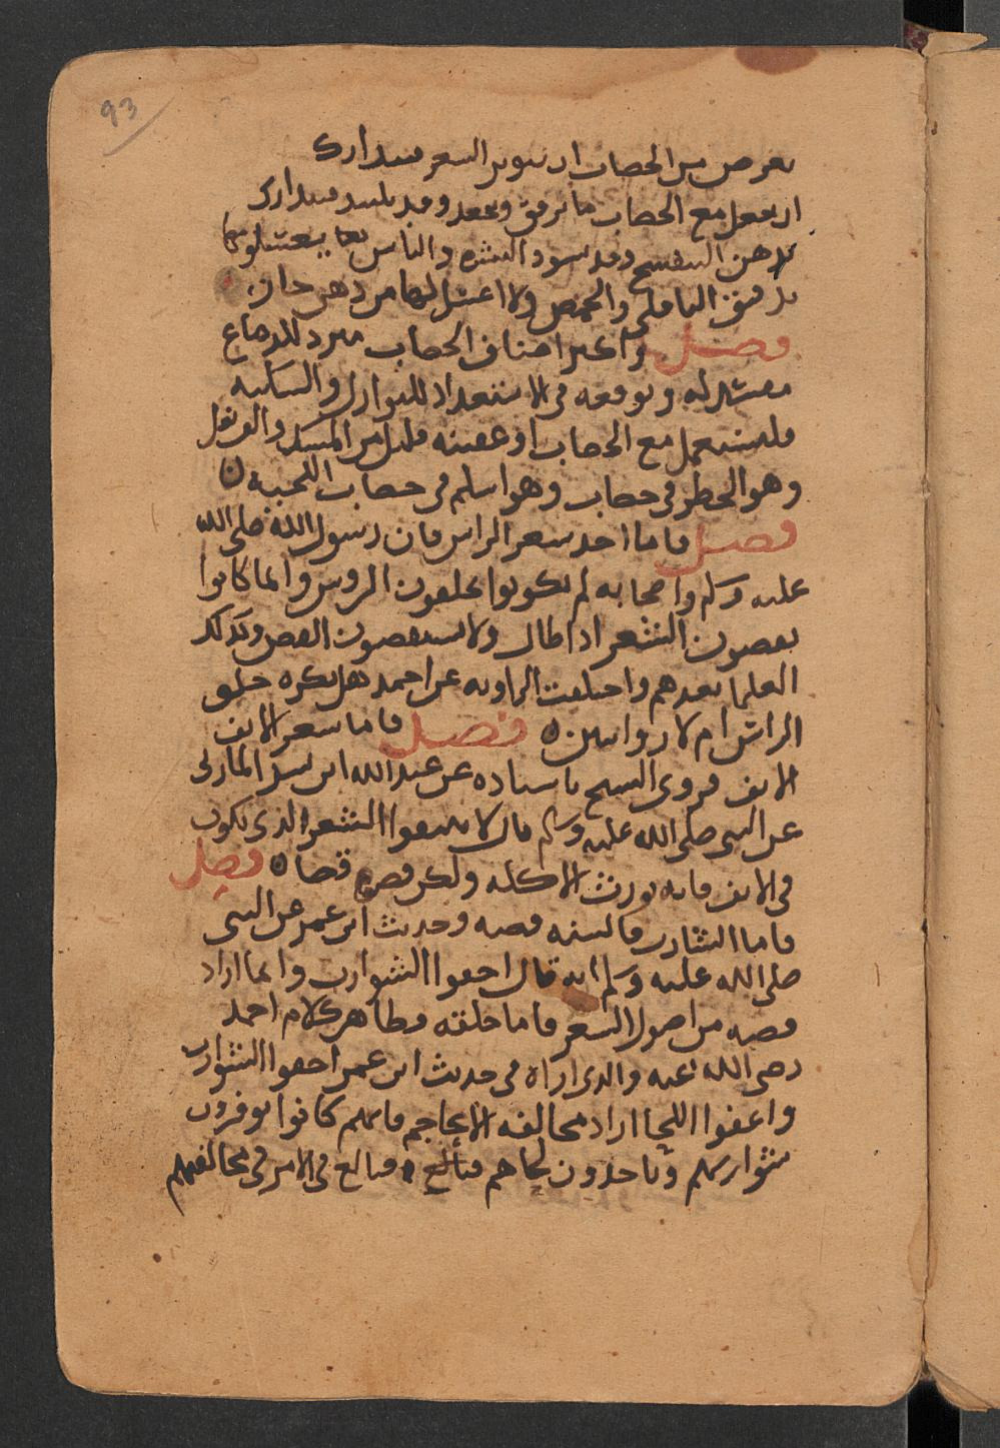 93
يعرض من الخضاب ان يتوتر الشعر فيتدارك
ان يجعل مع الخضاب ما يرفق ويجعد وقد يلبد فيتدارك
بدهن البنفسج وقد يسود البشره والناس بعد يغسلونها
بدقيق الباقلي والحمص ولا اغسل لها من دهن حار
فصل واكثر اصناف الخضاب مبرد للدماغ
مفسد له ويوقعه في الاستعداد للنوازل والسكته
فليستعمل مع الخضاب او عقيبه قليل من المسك والقرنفل
وهو الخطر في خضاب وهو اسلم في خضاب اللحيه
فصل فاما اخذ شعر الراس فان رسول الله صلى الله
عليه وسلم واصحابه لم يكونوا يحلقون الروس وانما كانوا
يقصون الشعر اذا طال ولا يستقصون القص وكذلك
العلما بعدهم واختلفت الروايه عن احمد هل يكره حلق
الراس ام لا روايتين فصل فاما شعر الانف
الانف فروى الشيخ باسناده عن عبد الله ابن بسر المازني
عن النبي صلى الله عليه وسلم قال لا تنتفوا الشعر الذي يكون
في الانف فانه يورث الاكله ولكن قصوه قصا فصل
فاما الشارب فالسنه قصه وحديث ابن عمر عن النبي
صلى الله عليه وسلم انه قال احفوا الشوارب وانما اراد
قصه من اصول الشعر فاما حلقه فظاهر كلام احمد
رضي الله عنه والذي اراه في حديث ابن عمر احفوا الشوارب
واعفوا اللحا اراد مخالفه الاعاجم فانهم كانوا يوفرون
شواربهم وياخذون لحاهم فبالغ فبالغ في الامر في مخالفتهم